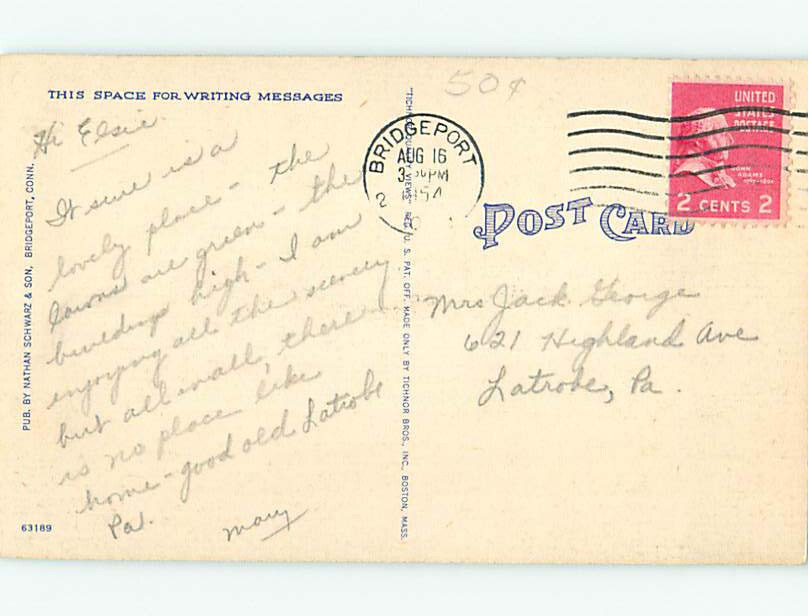 50¢
THIS SPACE FOR WRITING MESSAGES
Hi Elsie
It sure is a
lovely place - the
lawns are green - the
buildings high - I am
enjoying all the scenery
but all in all, there
is no place like
home - good old Latrobe
Pa.
Mary
63189
PUB. BY NATHAN SCHWARZ & SON, BRIDGEPORT, CONN.
"TICHNOR QUALITY VIEWS" REG. U. S. PAT. OFF. MADE ONLY BY TICHNOR BROS., INC., BOSTON, MASS.
BRIDGEPORT
AUG 16
PM
2
UNITED
STATES
POSTAGE
JOHN
ADAMS
2 CENTS 2
POST CARD
Mrs Jack George
621 Highland Ave
Latrobe, Pa.